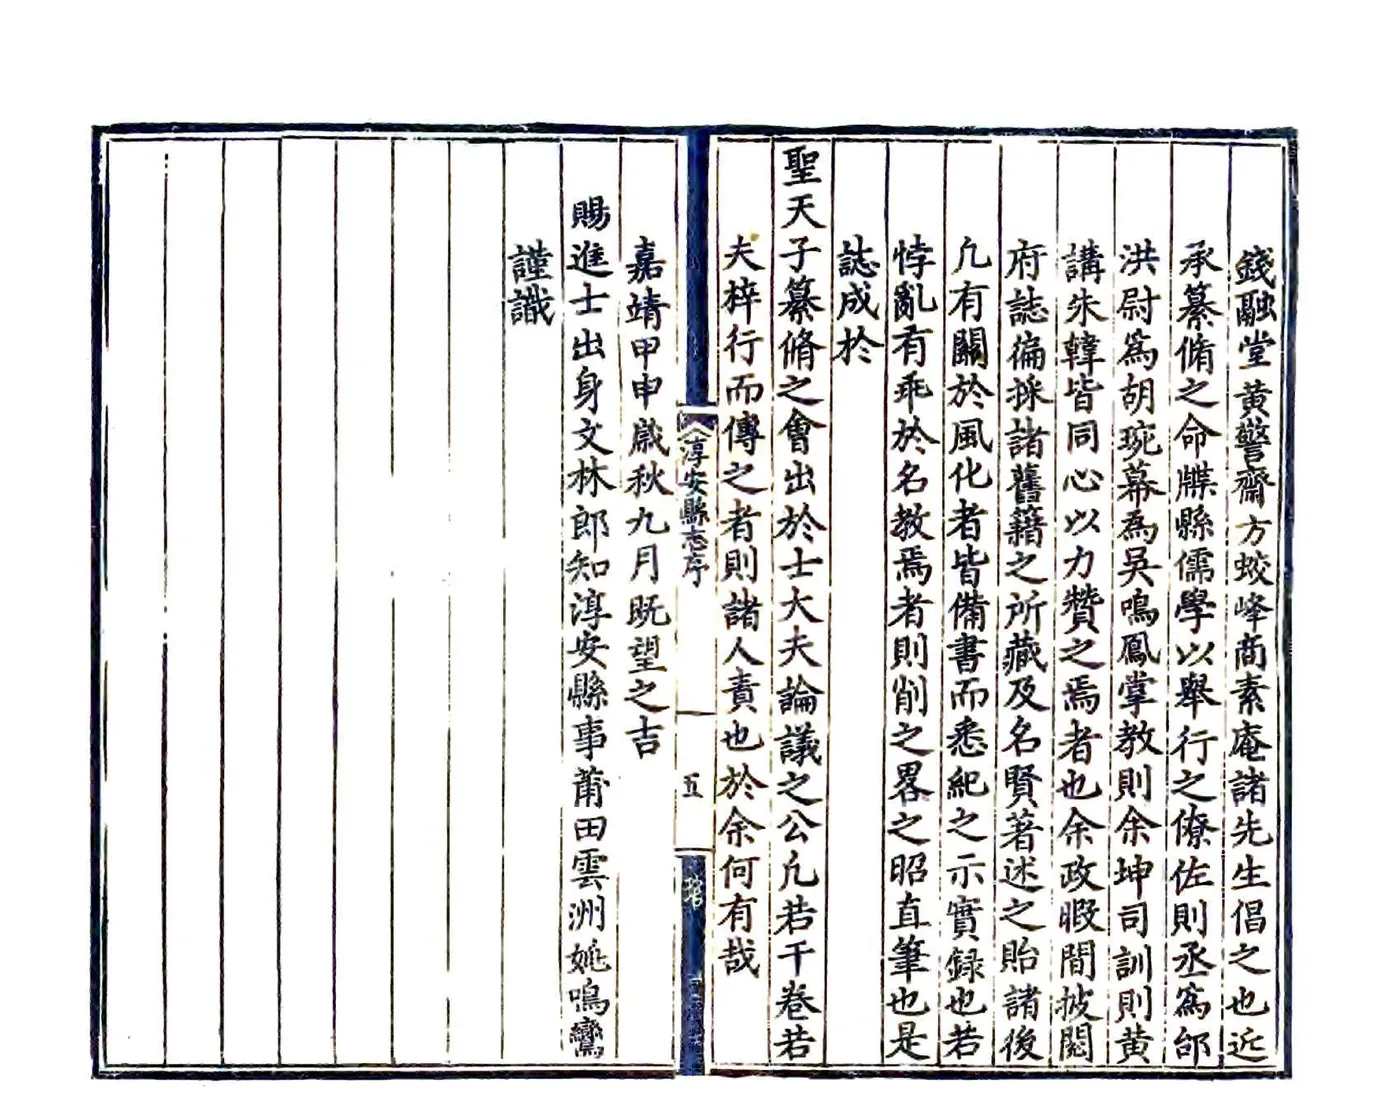 錢融堂黃警齋方蛟峰商素庵諸先生倡之也近
承纂脩之命牒縣儒學以舉行之僚佐則丞為邰
洪尉為胡琬幕為吳鳴鳳掌教則余坤司訓則黃
講朱韓皆同心以力贊之焉者也余政暇間披閱
府誌徧採諸舊籍之所藏及名賢著述之貽諸後
凢有關於風化者皆備書而悉紀之示實録也若
悖亂有乖於名教焉者則削之畧之昭直筆也是
誌成於
聖天子纂脩之會出於士大夫論議之公凢若干卷若
夫梓行而傳之者則諸人責也於余何有哉
淳安縣志序
五
嘉靖甲申歲秋九月既望之吉
賜進士出身文林郎知淳安縣事莆田雲洲姚鳴鸞
謹識